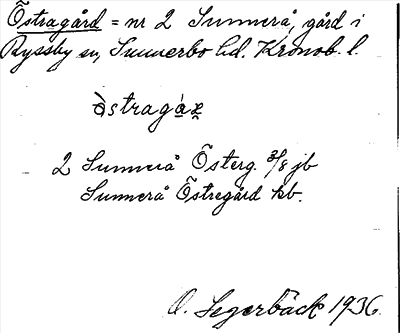 Östragård = nr 2 Sunnerå, gård i
Ryssby sn, Sunnerbo hd. Kronob. l.
òstragáʀ̥
2 Sunnerå Österg. 3/8 jb
Sunnerå Östregård kb.
O. Segerbäck 1936.